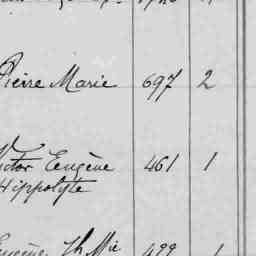 Pierre Marie 697 2
Victor Eugène 461 1
Hippolyte
Eugène Th. Mie 499 1